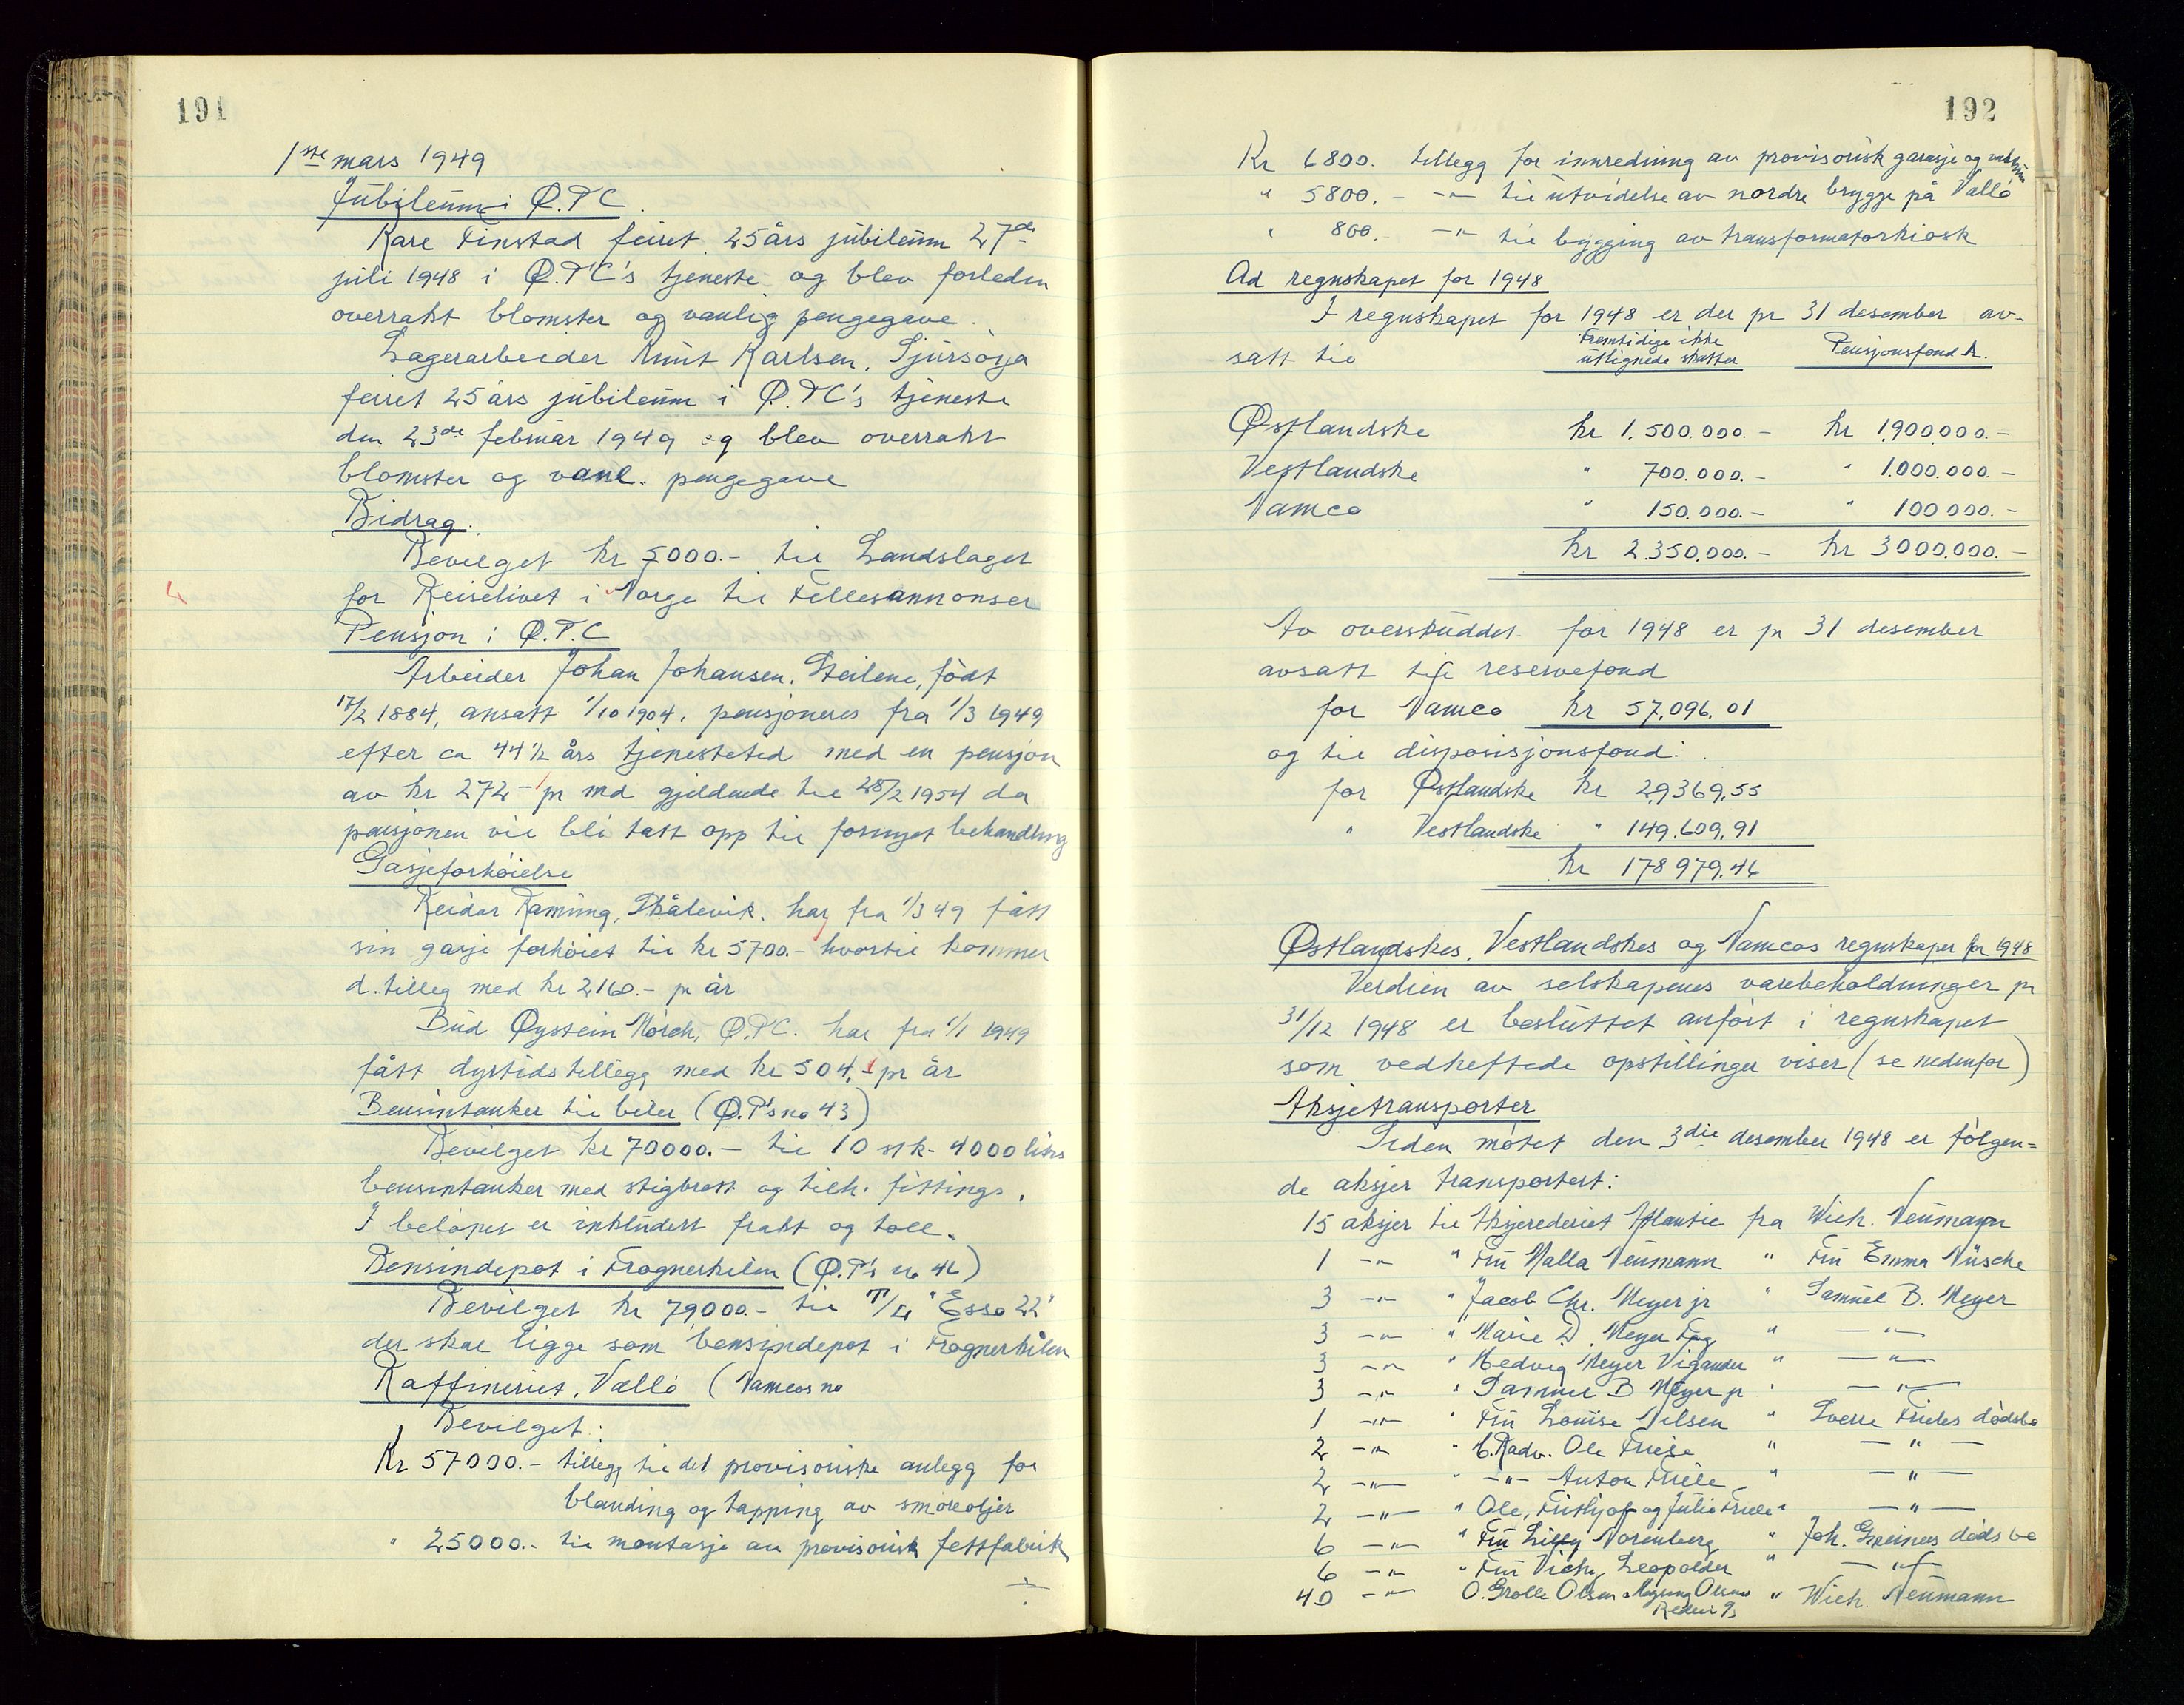 191
1ste mars 1949
Jubileum i Ø.P.C.
Kåre Finstad feiret 25 års jubileum 27de
juli 1948 i Ø.P.C's tjeneste og blev forleden
overrakt blomster og vanlig pengegave.
Lagerarbeider Knut Karlsen, Sjursøya
feiret 25 års jubileum i Ø.P.C's tjeneste
den 23de februar 1949 og blev overrakt
blomster og vanl. pengegave
Bidrag.
Bevilget kr 5000.- til Landslaget
for Reiselivet i Norge til Fellesannonser
Pensjon i Ø.P.C
Arbeider Johan Johansen, Steilene, født
17/2 1884, ansatt 1/10 1904, pensjoneres fra 1/3 1949
efter ca 44 1/2 års tjenestetid med en pensjon
av kr 272.- pr md gjeldende til 28/2 1954 da
pensjonen vil bli tatt opp til fornyet behandling
Gasjeforhøielse
Reidar Ramung, Skålevik, har fra 1/3 49 fått
sin gasje forhøiet til kr 5700.- hvortil kommer
d. tilleg med kr 2160.- pr år
Bud Øystein Mørch, Ø.P.C. har fra 1/1 1949
fått dyrtidstillegg med kr 504.- pr år
Bensintanker til biler (Ø.P's no 43)
Bevilget kr 70000.- til 10 stk. 4000 liters
bensintanker med stigbrett og tilh. fittings.
I beløpet er inkludert frakt og toll.
Bensindepot i Frognerkilen (Ø.P's no 42)
Bevilget kr 79000.- til T/L "Esso 22"
der skal ligge som bensindepot i Frognerkilen
Raffineriet, Vallø (Namcos no
Bevilget:
Kr 57000.- tillegg til det provisoriske anlegg for
blanding og tapping av smøreoljer
" 25000.- til montasje av provisorisk fettfabrik
192
Kr 6800. tillegg for innredning av provisorisk garasje og
" 5800.- -"- til utvidelse av nordre brygge på Vallø
" 800.- -"- til bygging av transformatorkiosk
Ad regnskapet for 1948
I regnskapet for 1948 er der pr 31 desember av-
satt til Fremtidige ikke utlignede skatter Pensjonsfond A.
Østlandske kr 1.500.000.- kr 1.900.000.-
Vestlandske " 700.000.- " 1.000.000.-
Namco " 150.000.- " 100 000.-
kr 2.350.000.- kr 3000.000.-
Av overskuddet for 1948 er pr 31 desember
avsatt til reservefond
for Namco kr 57.096,01
og til disposisjonsfond:
for Østlandske kr 29.369,55
" Vestlandske " 149.609,91
kr 178 979,46
Østlandskes, Vestlandskes og Namcos regnskaper for 1948
Verdien av selskapenes varebeholdninger pr
31/12 1948 er besluttet anført i regnskapet
som vedheftede opstillinger viser (se nedenfor)
Aksjetransporter
Siden møtet den 3die desember 1948 er følgen=
de aksjer transportert:
15 aksjer til Aksjerederiet Atlantic fra Wich. Neumann
1 -"- " Fru Malla Neumann " Fru Emma Nüsche
3 -"- " Jacob Chr. Meyer jr " Samuel B. Meyer
3 -"- " Marie D. Meyer Fog " -"-
3 -"- " Hedvig Meyer Vigander " -"-
3 -"- " Samuel B Meyer jr " -"-
1 -"- " Fru Louise Nilsen " Sverre Frieles dødsbo
2 -"- " Ole Friele " -"-
2 -"- " -"- Anton Friele " -"-
2 -"- " Ole, Frithjof og Julie Friele " -"-
6 -"- " Fru Lilly Norenberg " Joh. Greiners dødsbo
6 -"- " Fru Vicky Leopolder " -"-
40 -"- O. Grolle Olsen " Wich. Neumann